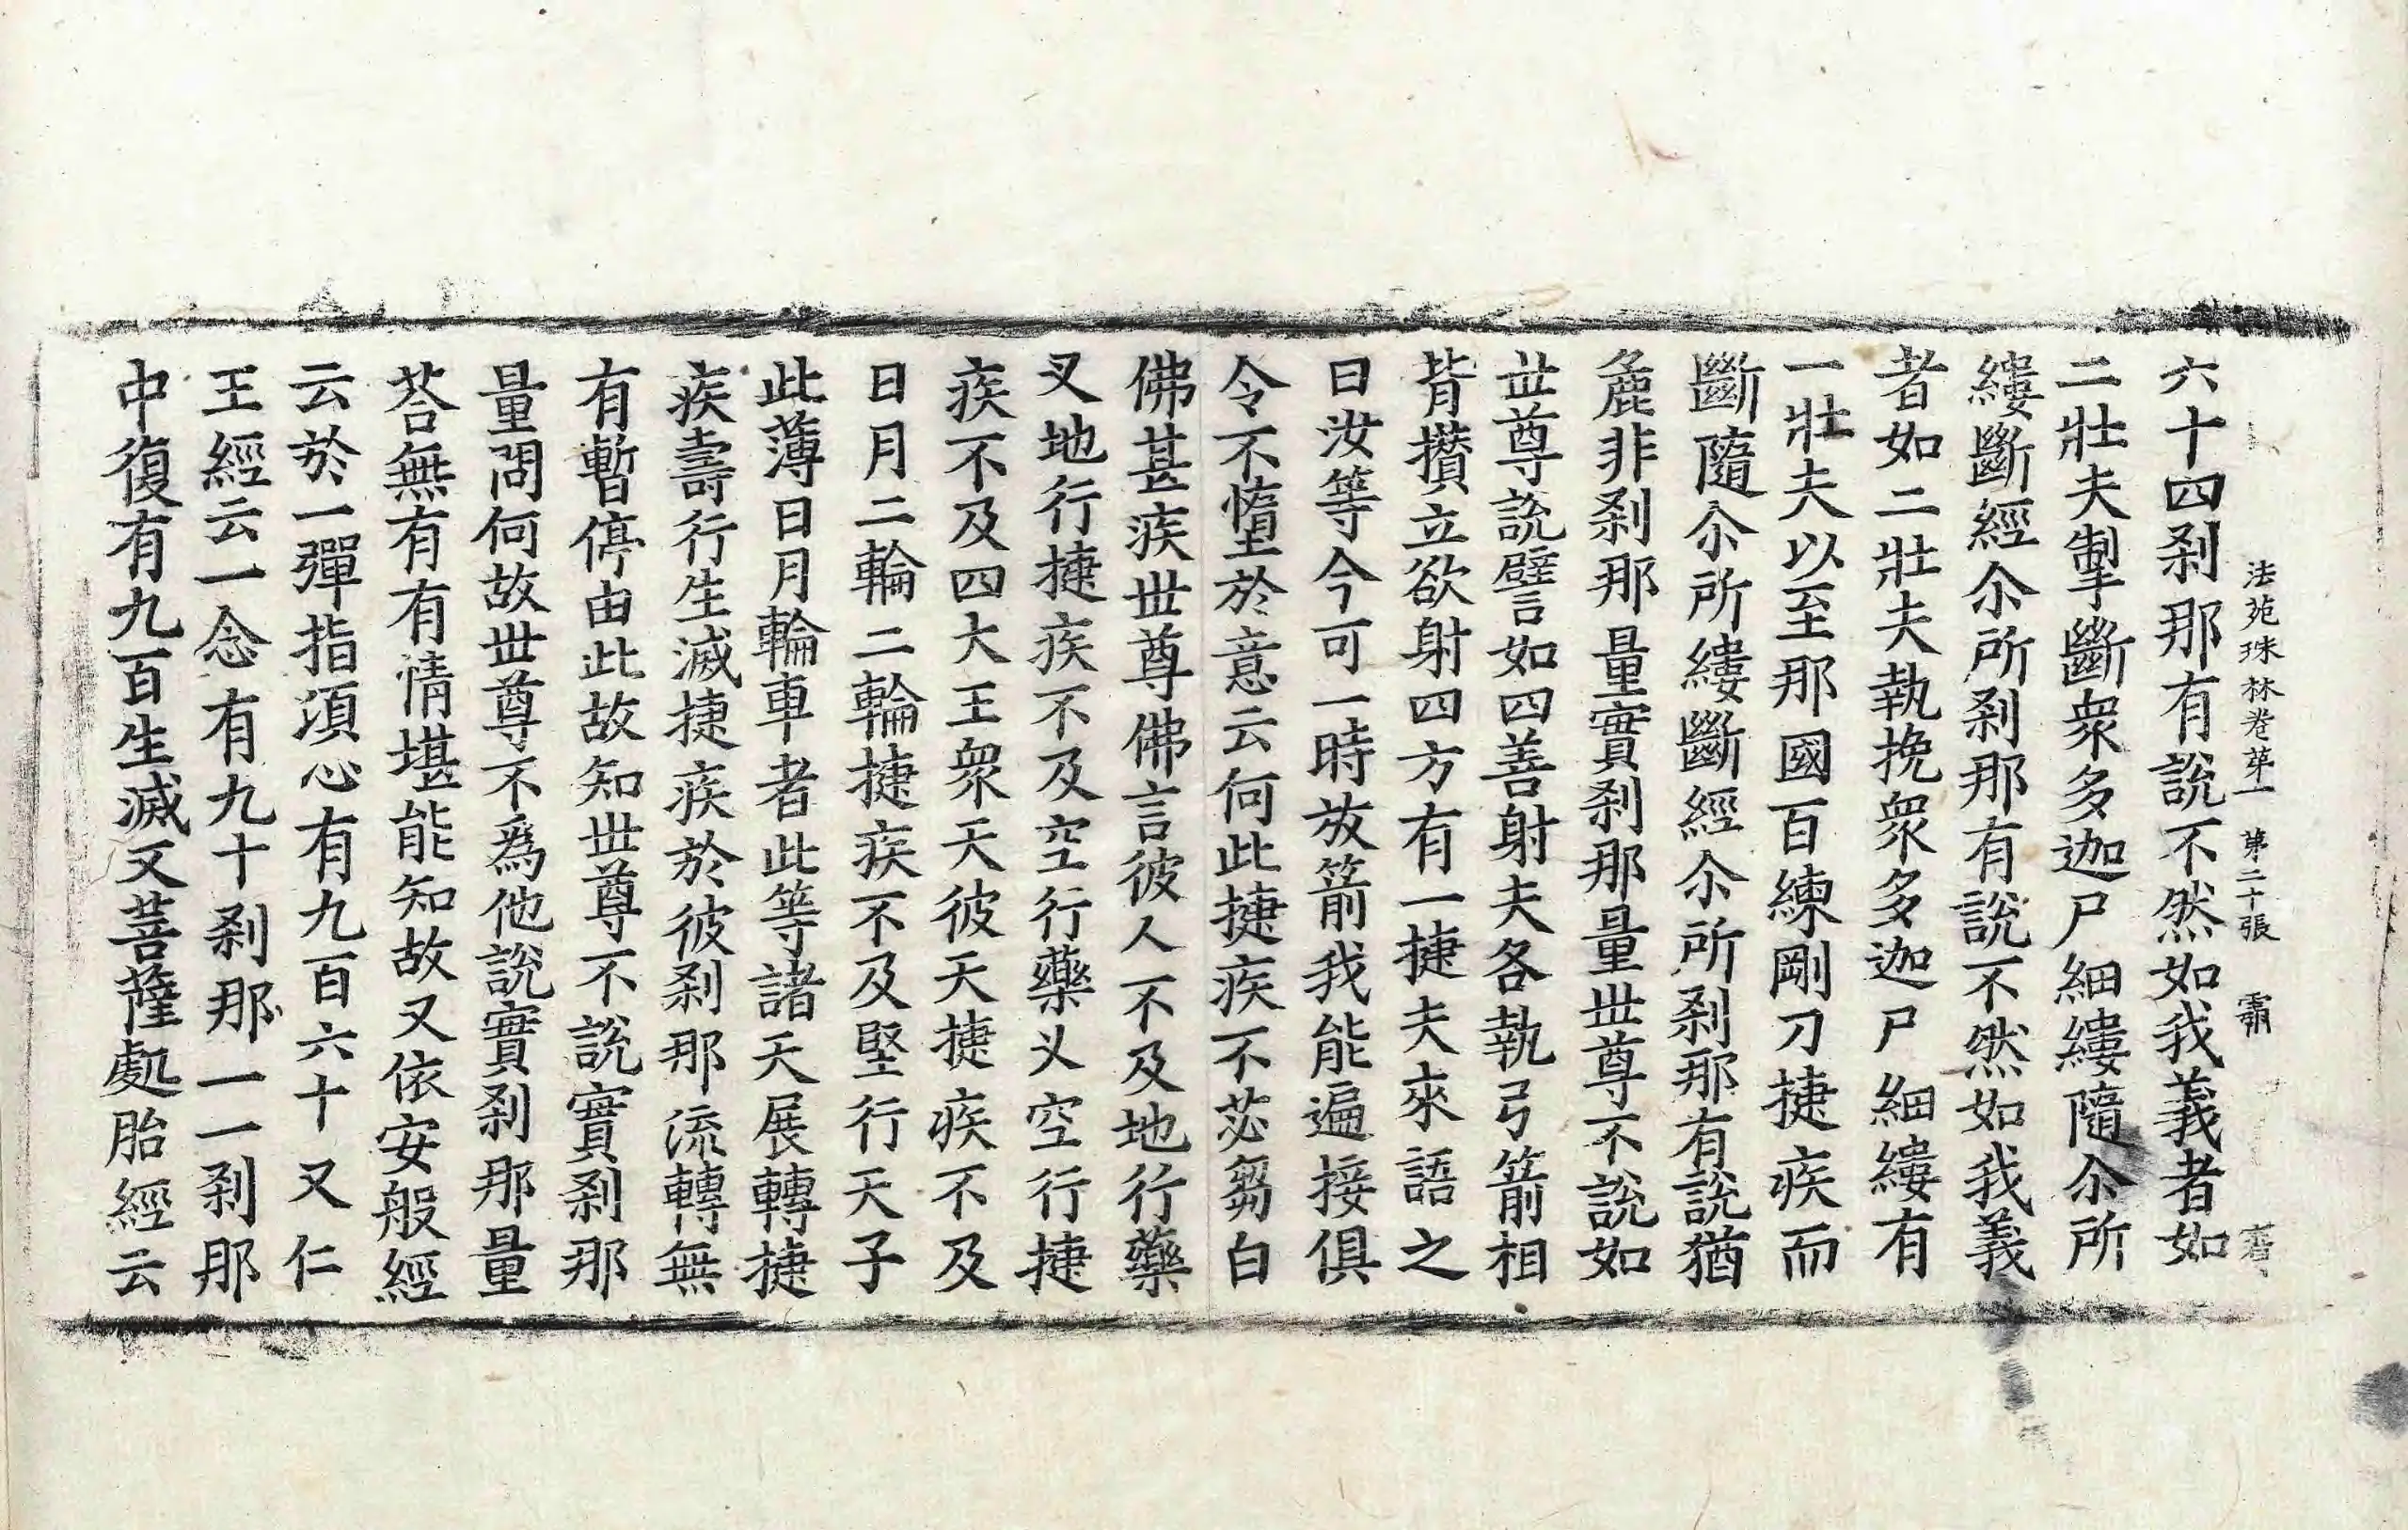 法苑珠林卷苐一 第二十張 霸
六十四剎那有說不然如我義者如
二壯夫掣斷衆多迦尸細縷隨尒所
縷斷經尒所剎那有說不然如我義
者如二壯夫執挽衆多迦尸細縷有
一壯夫以至那國百練剛刀捷疾而
斷隨尒所縷斷經尒所剎那有說猶
麁非剎那量實剎那量世尊不說如
世尊說譬如四善射夫各執弓箭相
背攢立欲射四方有一捷夫來語之
曰汝等今可一時放箭我能遍接俱
令不墮於意云何此捷疾不苾芻白
佛甚疾世尊佛言彼人不及地行藥
叉地行捷疾不及空行藥叉空行捷
疾不及四大王衆天彼天捷疾不及
日月二輪二輪捷疾不及堅行天子
此薄日月輪車者此等諸天展轉捷
疾壽行生滅捷疾於彼剎那流轉無
有暫停由此故知世尊不說實剎那
量問何故世尊不爲他說實剎那量
荅無有有情堪能知故又依安般經
云於一彈指頃心有九百六十又仁
王經云一念有九十剎那一一剎那
中復有九百生滅又菩薩處胎經云